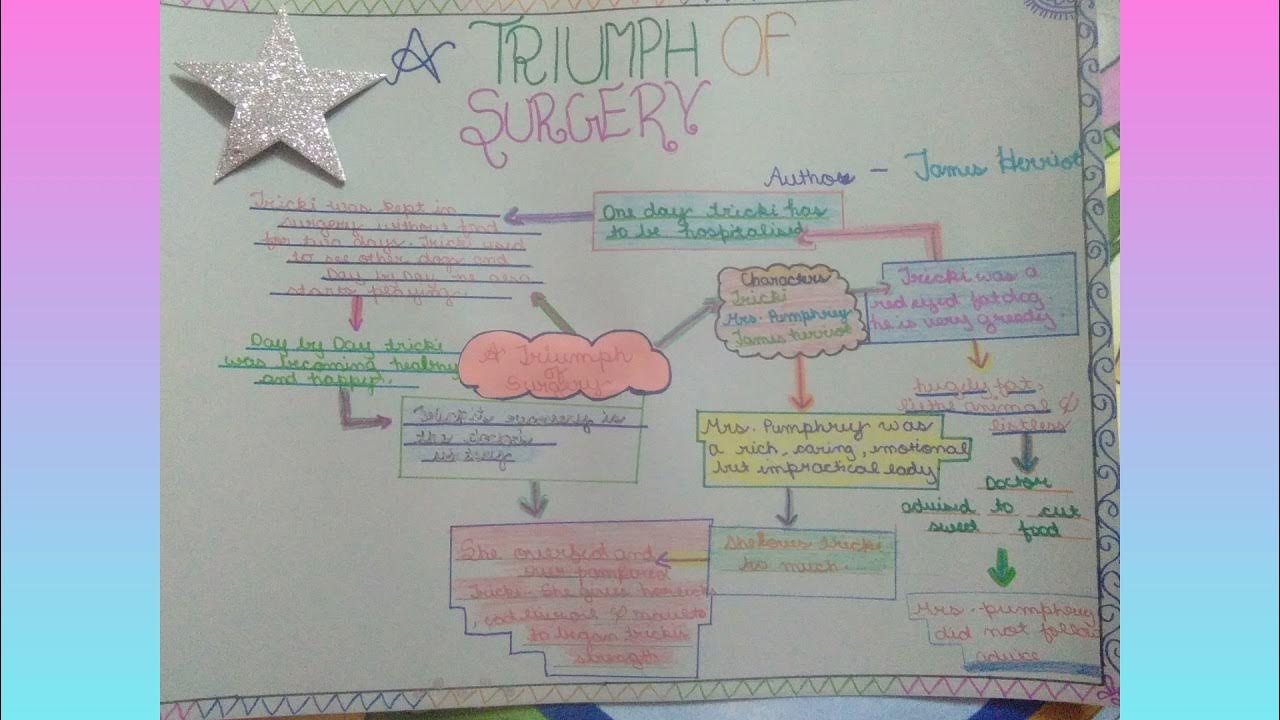 A TRIUMPH OF
SURGERY
Author - James Herriot
One day tricki has
to be hospitalised
Tricki was kept in
surgery without food
for two days. Tricki used
to see other dogs and
Day by Day he also
starts playing.
Day by Day tricki
was becoming healthy
and happy.
the
is
A Triumph
of
Surgery
Characters
Tricki
Mrs. Pumphrey
James herriot
Tricki was a
red eyed fat dog.
he is very greedy.
hugely fat,
little animal &
listless
Doctor
advised to cut
sweet food
Mrs. pumphrey
did not follow
advice
Mrs. Pumphrey was
a rich, caring, emotional
but impractical lady
She loves tricki
too much.
She overfed and
over pampered
Tricki. She gives horlicks
, cod liver oil &
to began tricki
strength